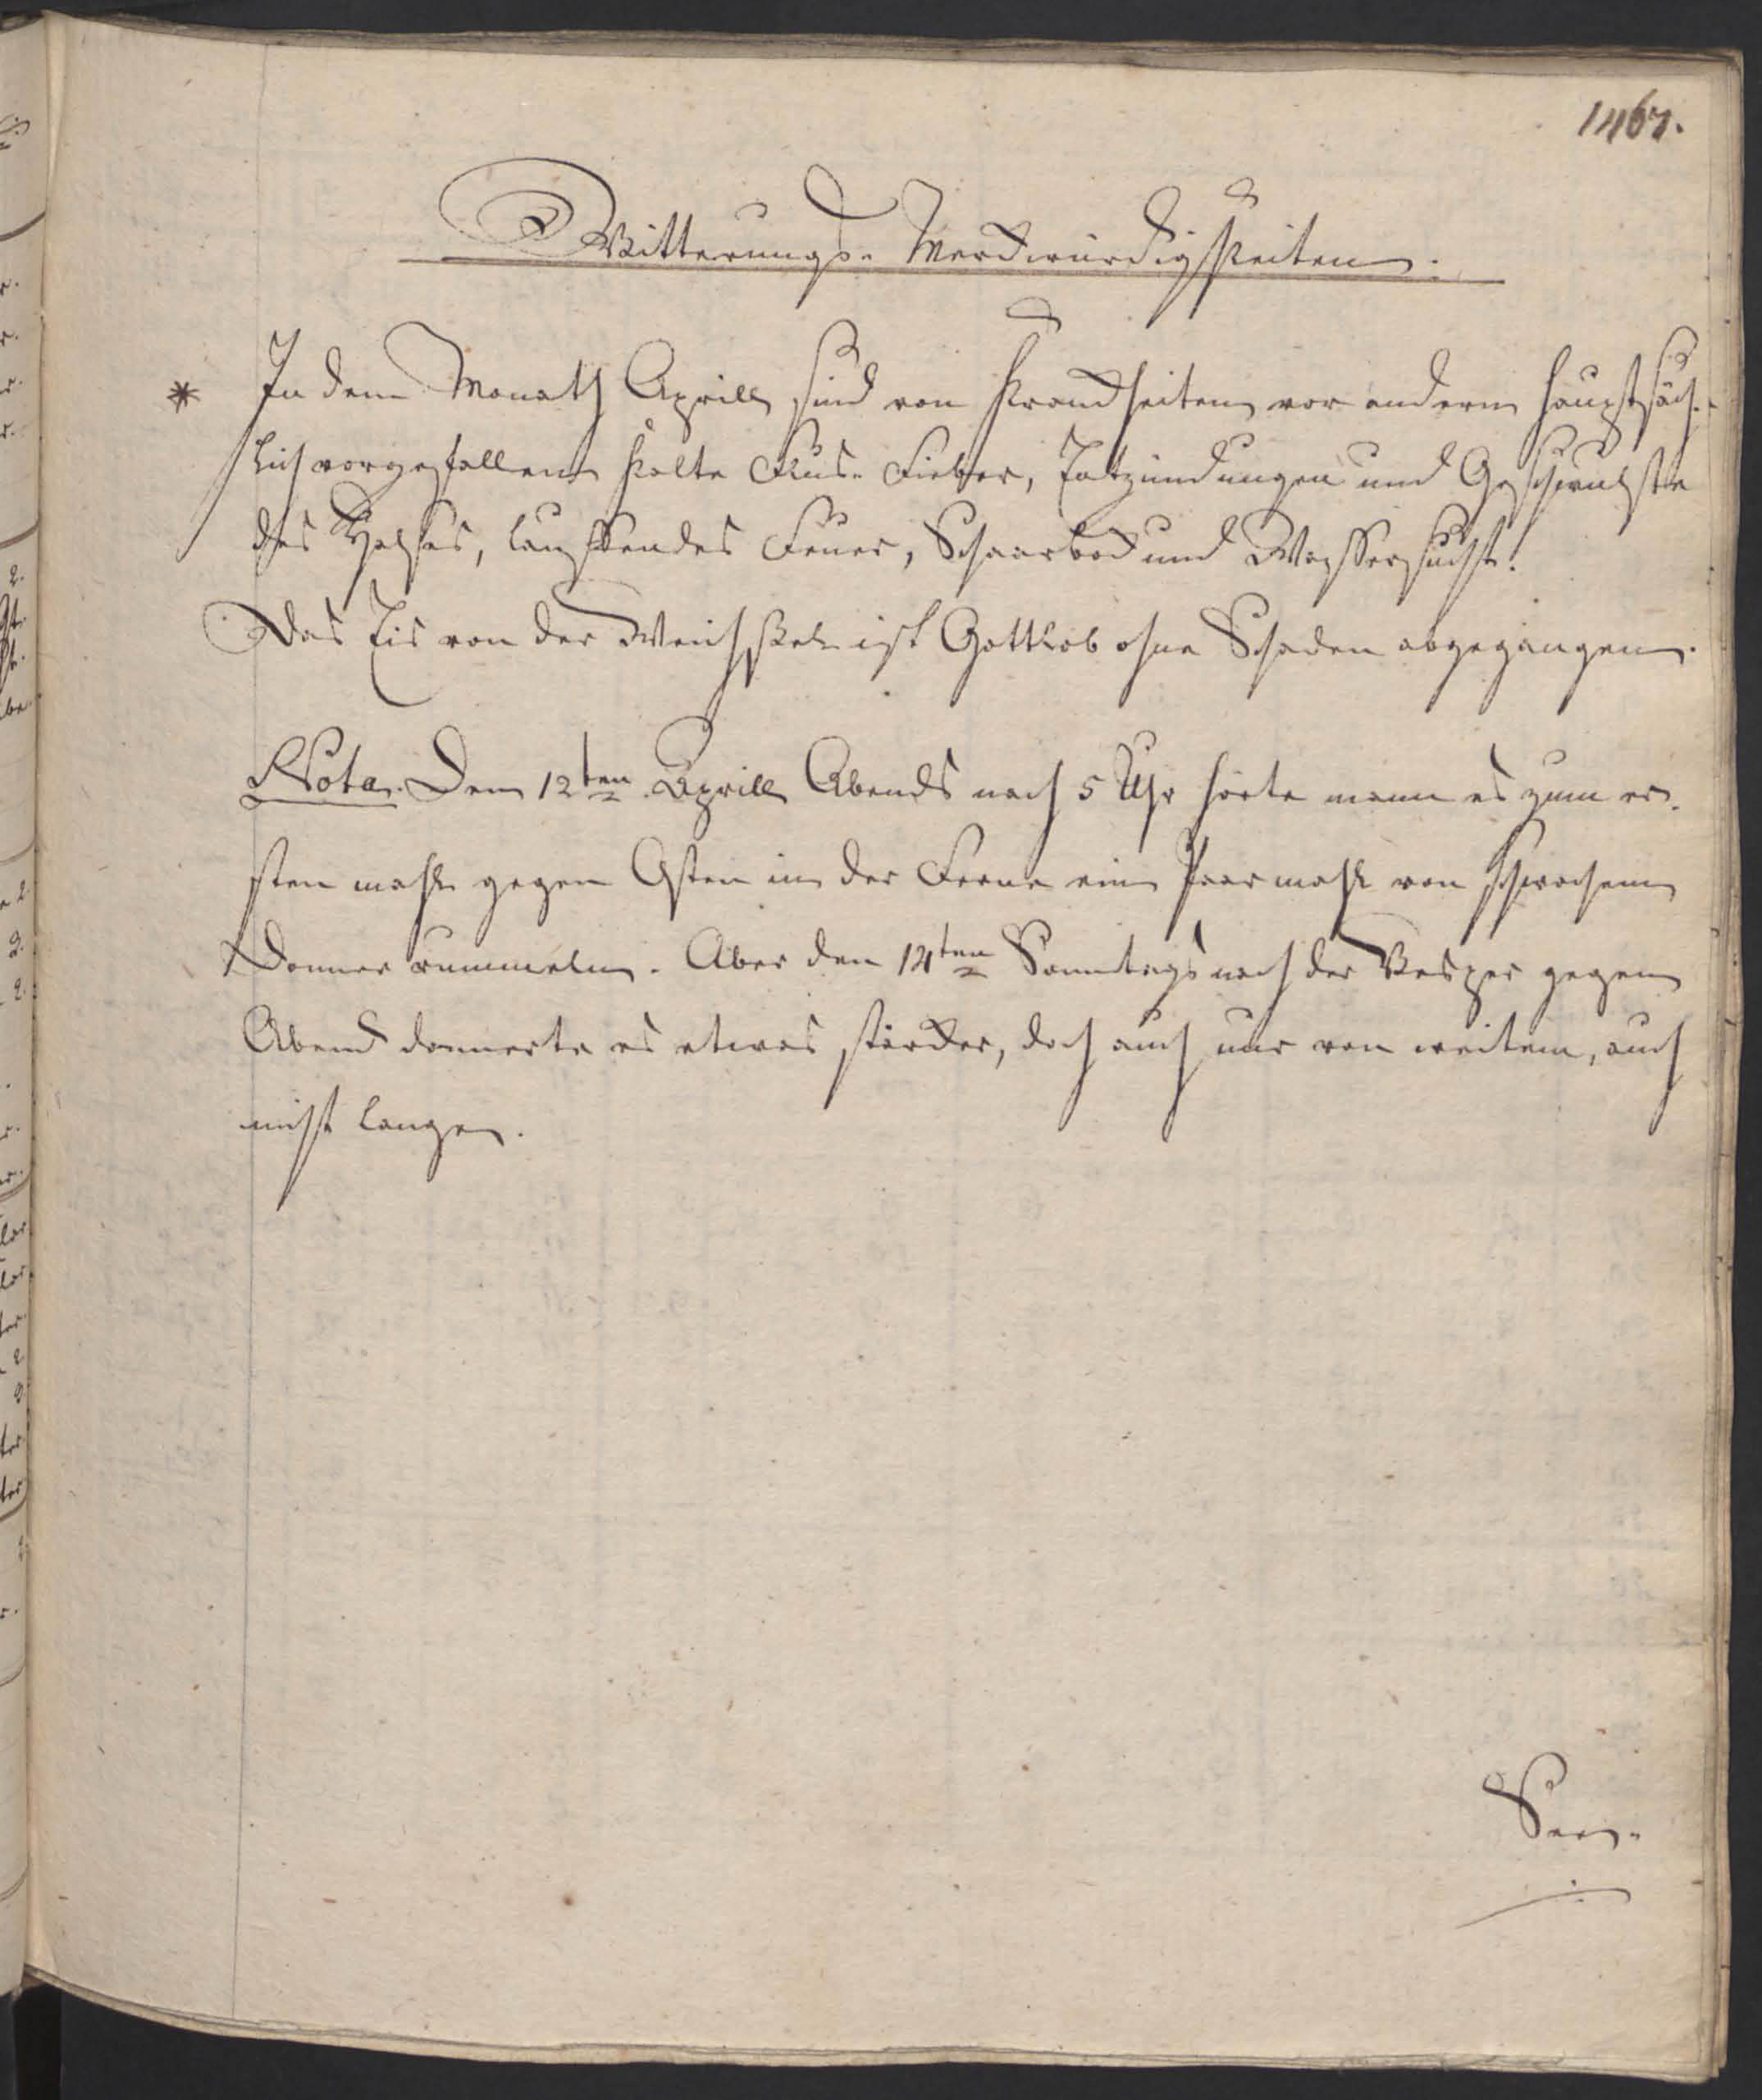 1467.
Witterungs-Merckwürdigkeiten.
* In dem Monath Aprill sind von Kranckheiten vor andern hauptsäch-
lich vorgefallen kalte Flus-Fieber, Entzündungen und Geschwulste
des Halses, lauffendes Feuer, Schaarbock und Wassersucht.
Das Eis von der Weichssel ist Gottlob ohne Schaden abgegangen.
Nota. Den 12ten Aprill Abends nach 5 Uhr hörte mann es zum er-
sten mahl gegen Osten in der Ferne ein Paar mahl von schwachem
Donner rummeln. Aber den 14ten Sonntags nach der Vesper gegen
Abend donnerte es etwas stärcker, doch auch nur von weitem, auch
nicht lange.